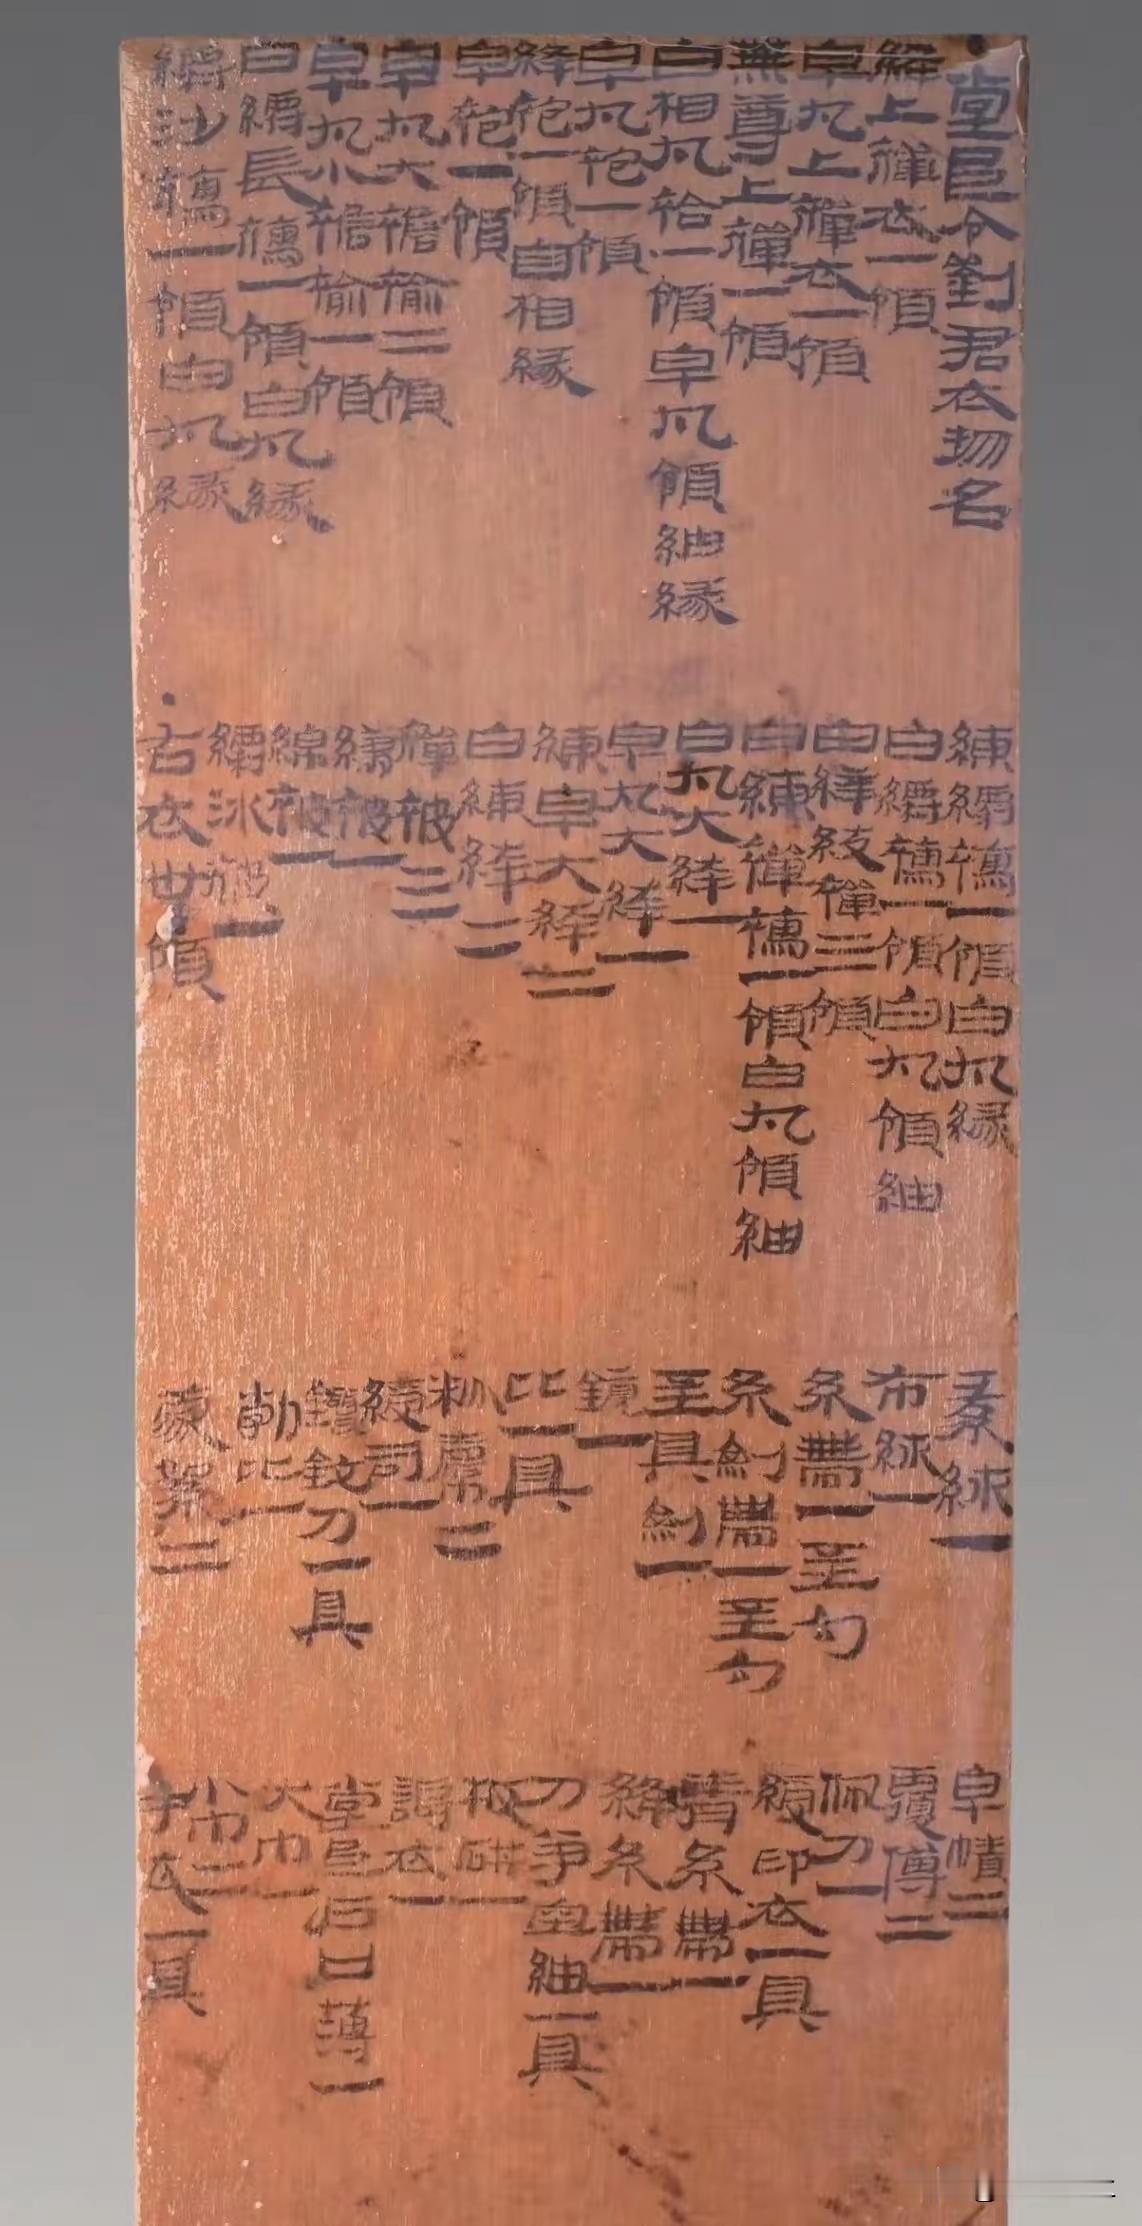 ●堂邑令劉君衣物名
絳上襌衣一領
皁丸上襌衣一領
無尊上襌一領
白相丸袷一領皁丸領紬緣
皁丸袍一領
絳袍一領白相緣
皁袍一領
皁丸大襜褕二領
皁丸小襜褕一領
白縟長襦一領白丸緣
縟沙襦一領白丸緣
練縟襦一領白丸緣
白縟襦一領白丸領紬
白鮮支襌三領
白練襌襦一領白丸領紬
白丸大絝一
皁丸大絝一
練皁大絝二
白練絝二
襌被二
縑被一
綿被一
縟冰被一
●右衣卌領
布絉一
糸帶一至勾
糸紃帶一至勾
至具紃一
鏡一
比一具
刀一具
比一
二
皁幘二
覆傅二
佩刀一
綬印衣一具
青糸帶一
絳糸帶一
刀紬一具
板研一
謁衣一
堂邑戶口薄一
大巾一
小巾二
手衣一具